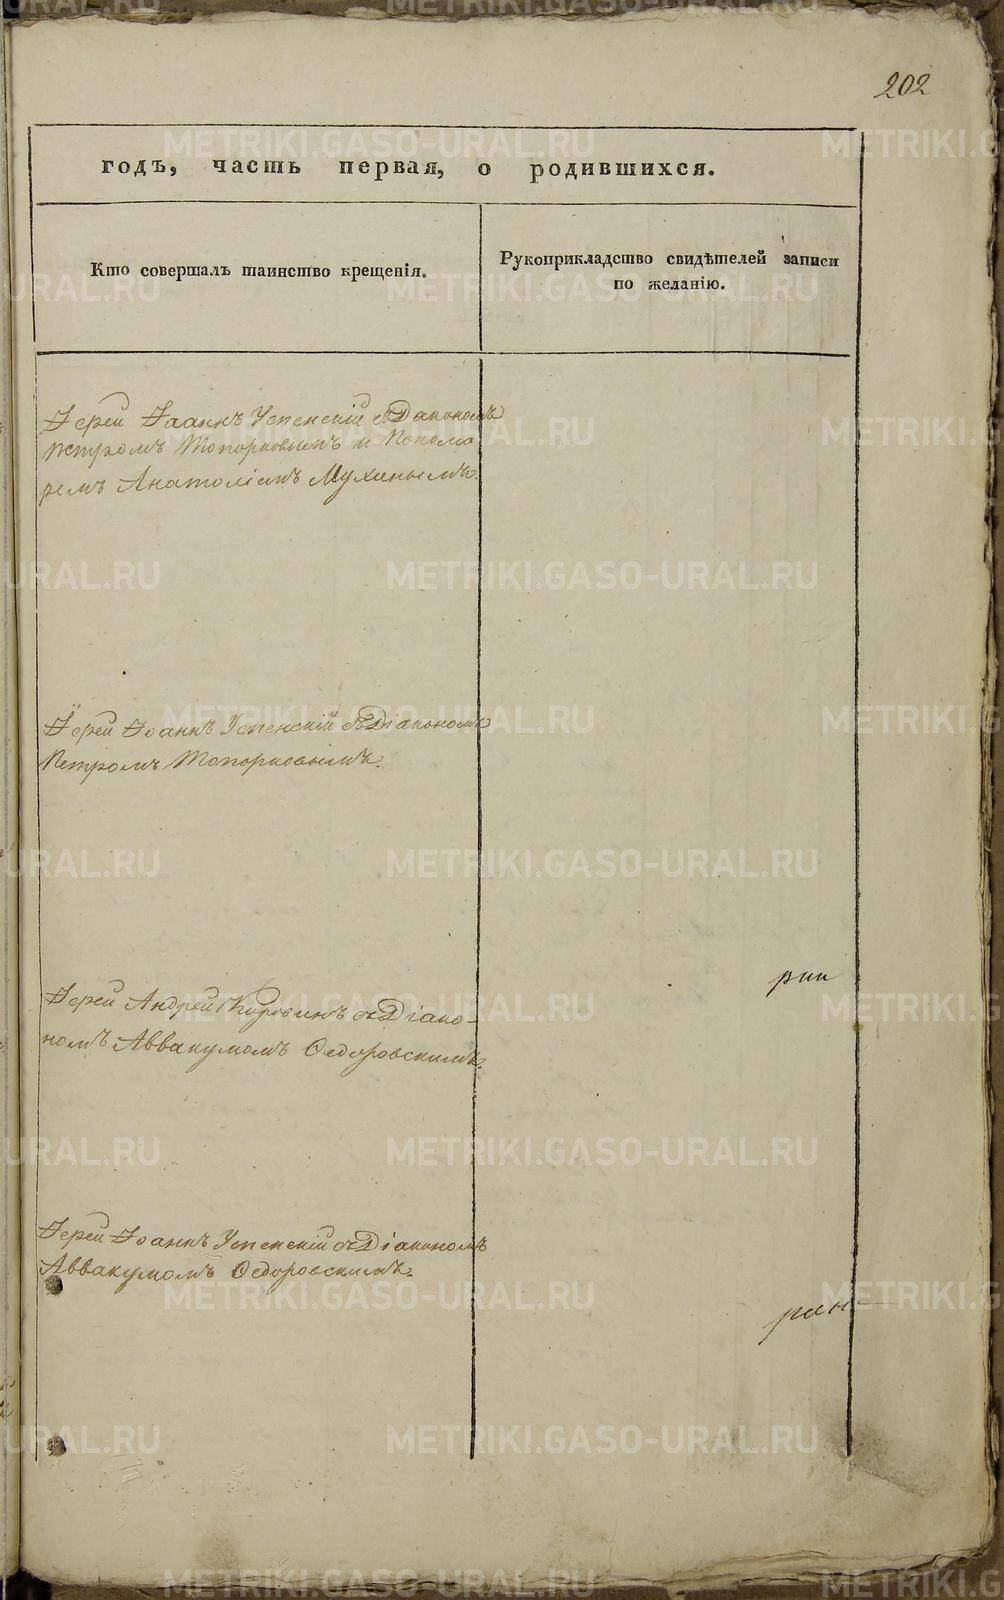 202
годъ, часть первая, о родившихся.
Кто совершалъ таинство крещенія.
Рукоприкладство свидѣтелей записи
по желанію.
Іерей Іоаннъ Успенскій съ Діакономъ
Петромъ Топорковымъ и Понома
ремъ Анатоліемъ Мухинымъ.
Іерей Іоаннъ Успенскій съ Діакономъ
Петромъ Топорковымъ.
Іерей Андрей Коровинъ съ Діако-
номъ Аввакумомъ Ѳедоровскимъ.
Іерей Іоаннъ Успенскій съ Діакономъ
Аввакумомъ Ѳедоровскимъ.
METRIKI.GASO-URAL.RU